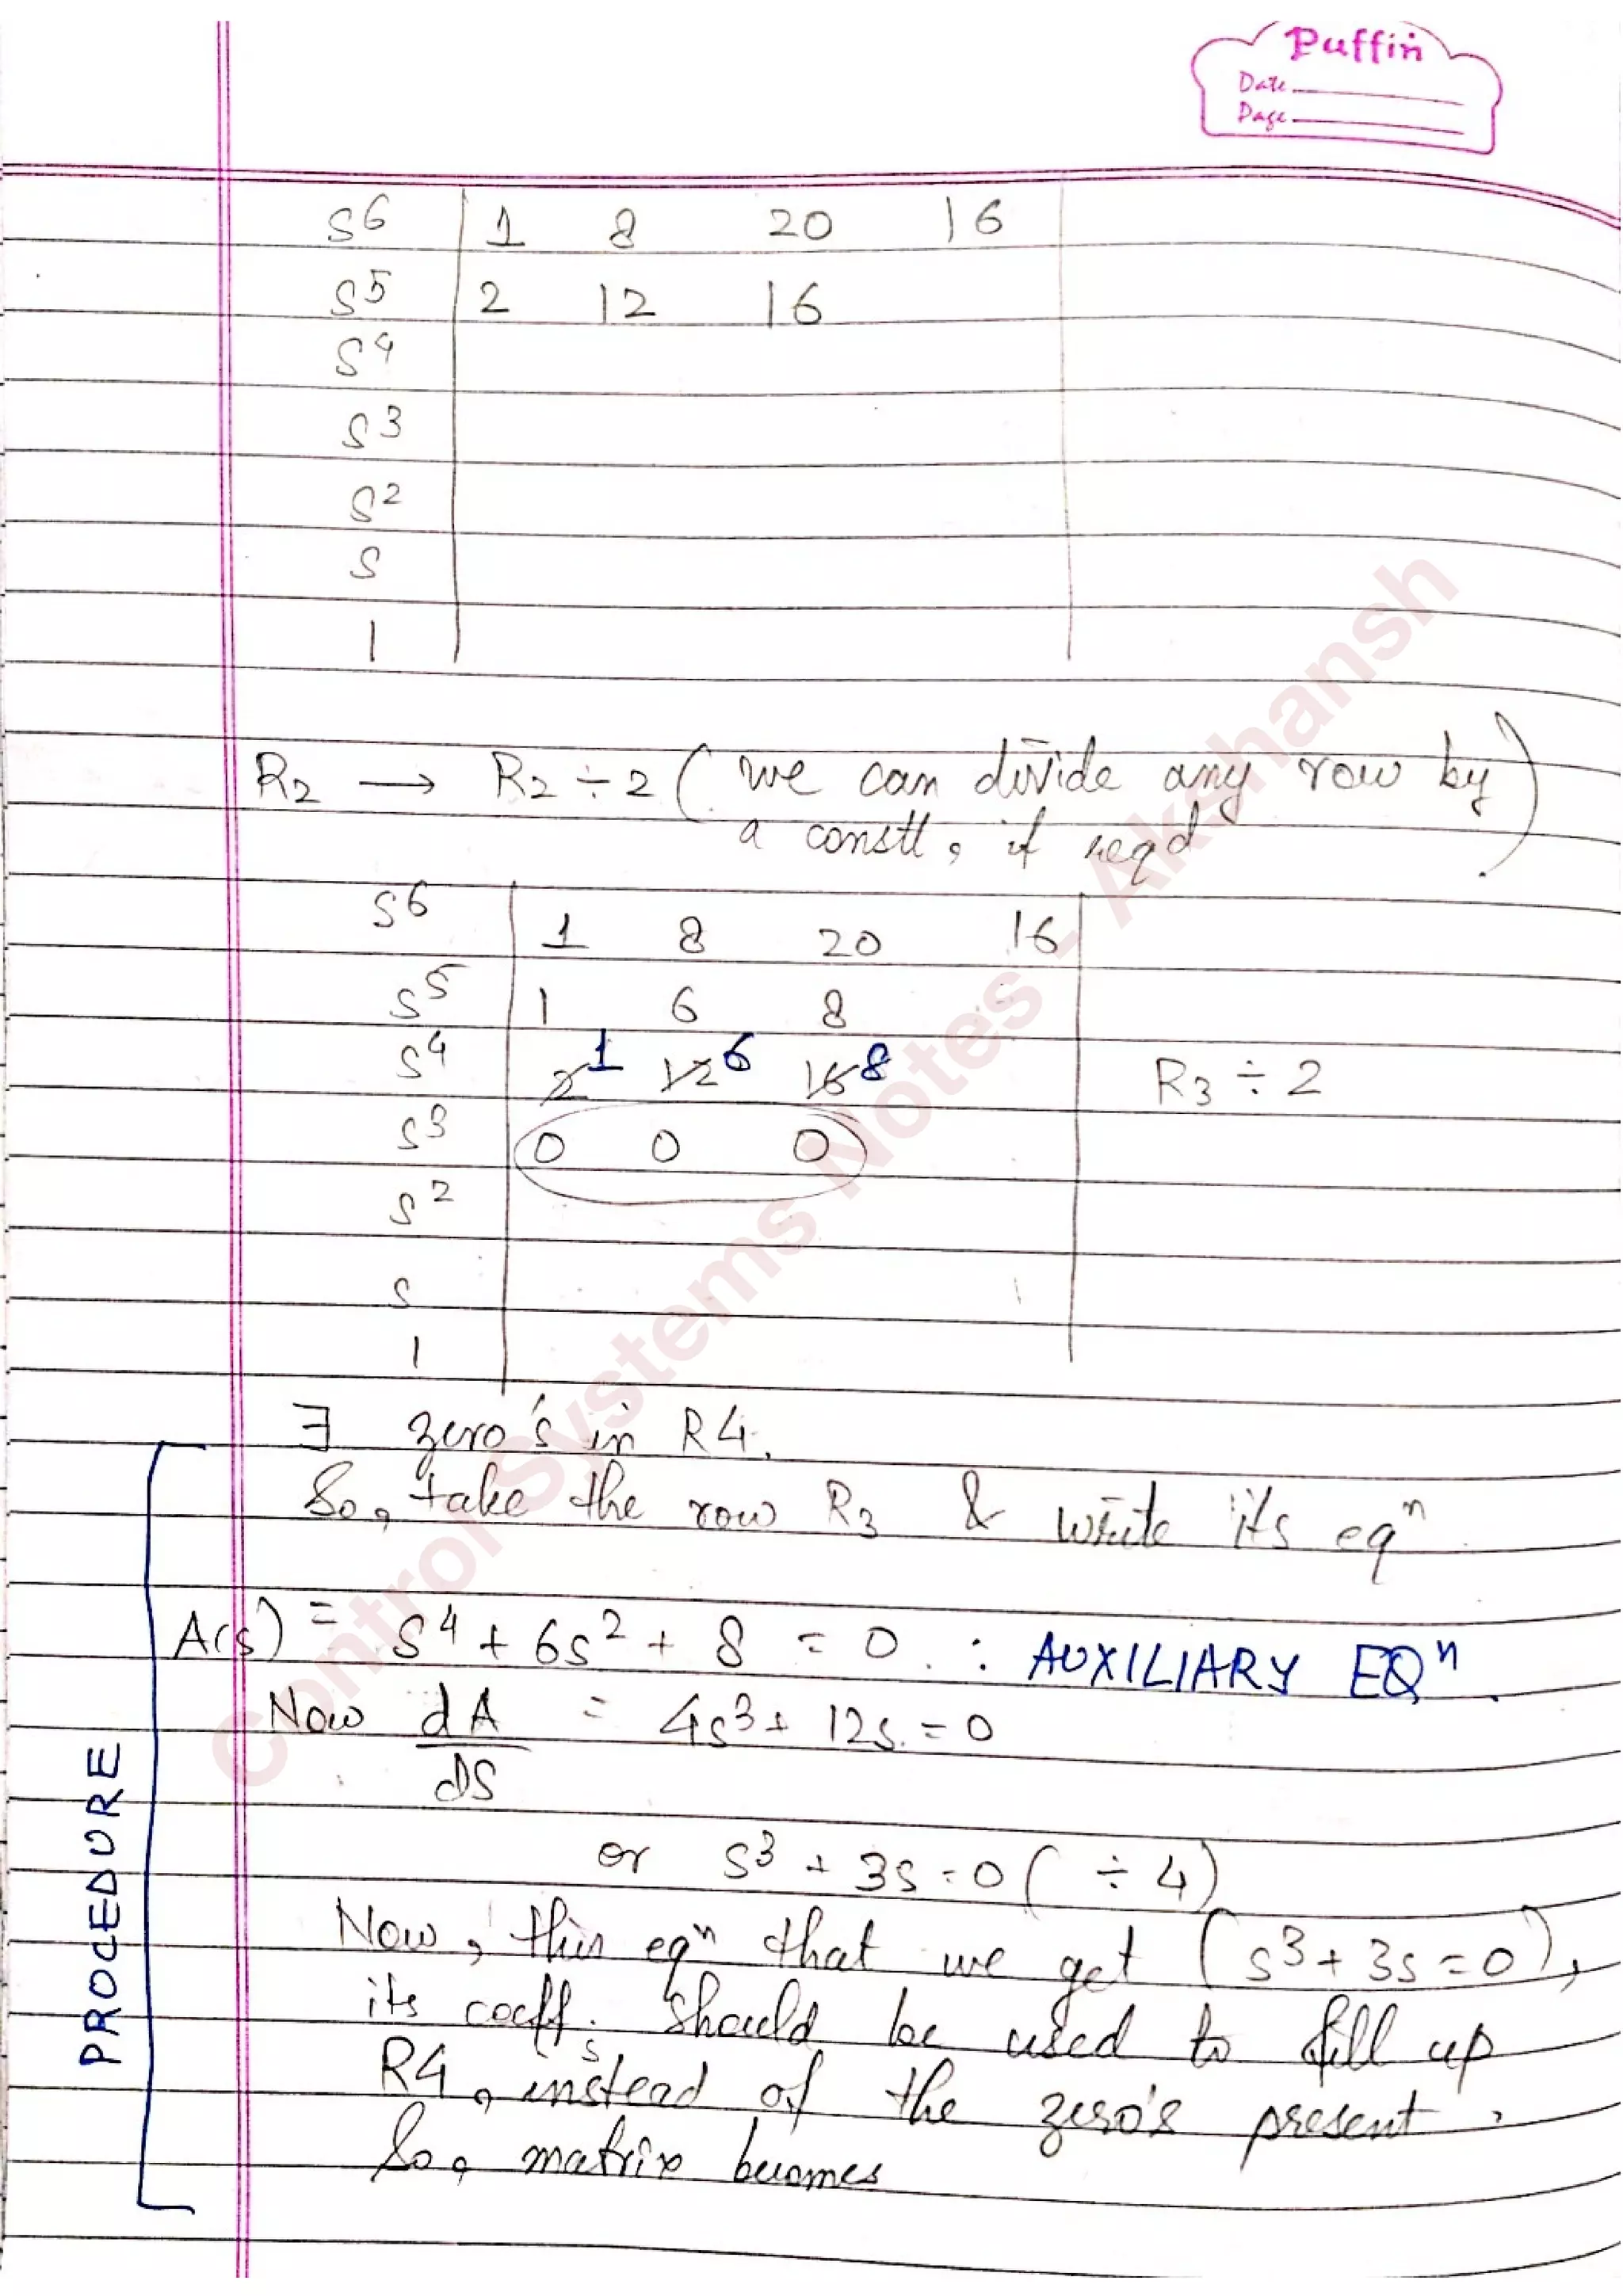 Puffin
Date
Page
S6 1 8 20 16
S5 2 12 16
S4
S3
S2
S
1
R2 → R2 ÷ 2 ( we can divide any row by
a constt, if reqd )
S6 1 8 20 16
S5 1 6 8
S4 2 1 12 6 16 8 R3 ÷ 2
S3 0 0 0
S2
S
1
∃ zero's in R4.
So, take the row R3 & write its eqn
A(s) = S4 + 6s2 + 8 = 0. : AUXILIARY EQn.
Now dA = 4s3 + 12s = 0
dS
or s3 + 3s = 0 ( ÷ 4)
Now, this eqn that we get (s3 + 3s = 0),
its coeff.s should be used to fill up
R4, instead of the zero's present.
So, matrix becomes
PROCEDURE
Control Systems Notes - Akshansh